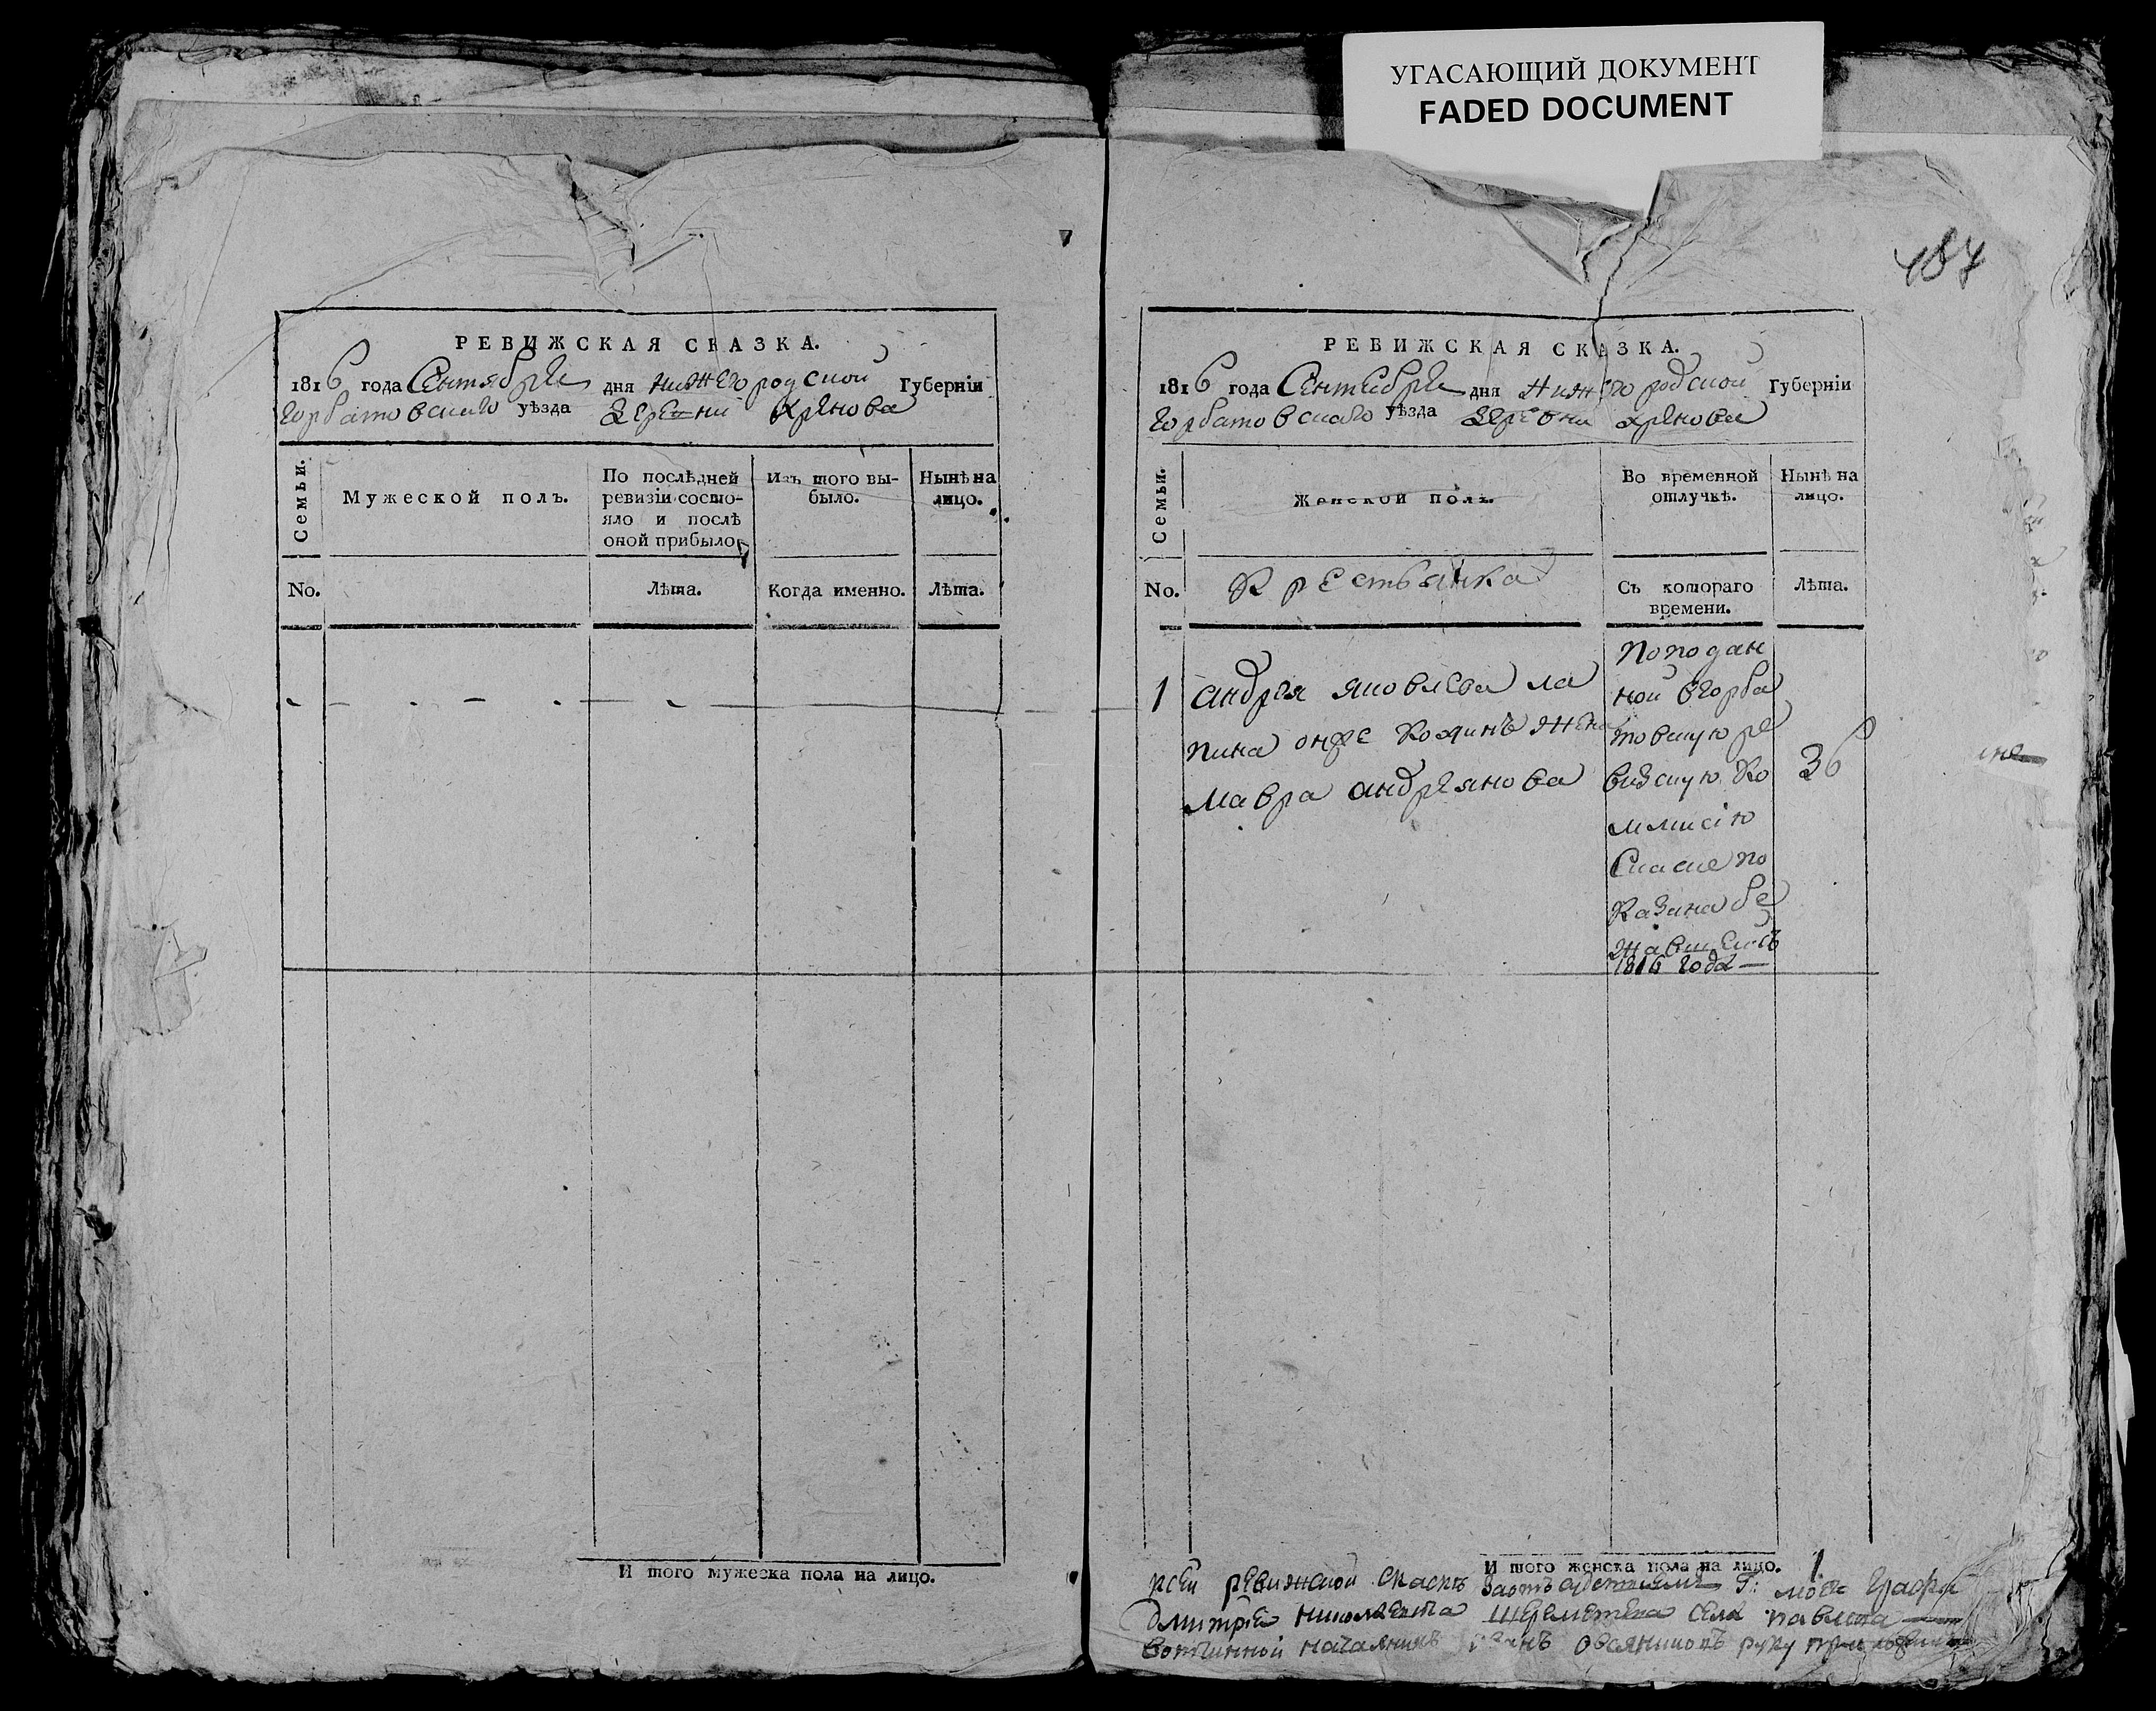 УГАСАЮЩИЙ ДОКУМЕНТ
FADED DOCUMENT
РЕВИЖСКАЯ СКАЗКА.
1816 года Сентября дня нижегородской Губерніи
горбатовскаго уѣзда деревни хрянова
Семьи.
Мужеской полъ.
По послѣдней
ревизіи состо-
яло и послѣ
оной прибыло
Изъ того вы-
было.
Нынѣ на
лицо.
No.
Лѣта.
Когда именно.
Лѣта.
И того мужеска пола на лицо.
187
РЕВИЖСКАЯ СКАЗКА.
1816 года Сентебря дня нижегородской Губерніи
горбатовскаго уѣзда деревни хрянова
Семьи.
Женской полъ.
Во временной
отлучкѣ.
Нынѣ на
лицо.
No.
Крестьянка
Съ котораго
времени.
Лѣта.
1
андрея яковлева ла
пина онже жена
мавра андреянова
поподан
ной вгорба
товскую ре
визскую ко
мисію
Скаске по
казана бе
жавшей съ
1816 года
36
И того женска пола на лицо. 1
ксей ревижской скаскѣ Г: графа
Дмитрея николаевича Шереметева села павлова
вотчинной начальникъ иванъ овсяниковъ руку приложилъ